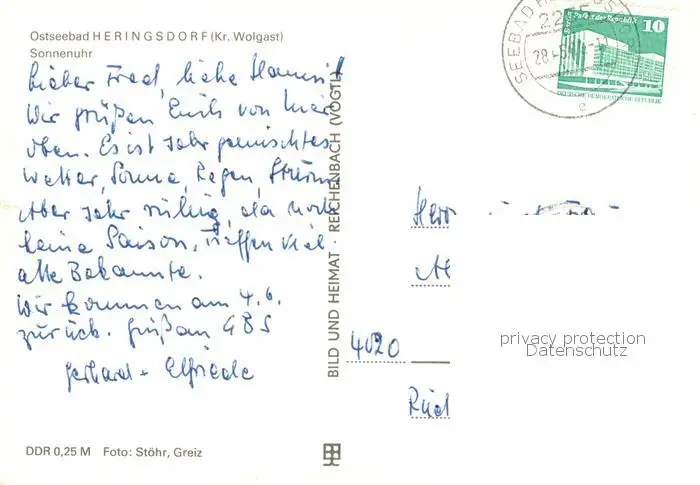 Ostseebad HERINGSDORF (Kr. Wolgast)
Sonnenuhr
Lieber Fred, liebe
Wir grüßen Euch von hier
oben. Es ist sehr gemischtes
Wetter, Sonne, Regen, Sturm.
Aber sehr ruhig, da noch
keine Saison, treffen viel
alte Bekannte.
Wir kommen am 4.6.
zurück. Grüß an GBS
Gerhard + Elfriede
DDR 0,25 M Foto: Stöhr, Greiz
BILD UND HEIMAT · REICHENBACH (VOGTL)
SEEBAD
10
Palast der Republik
DEUTSCHE DEMOKRATISCHE REPUBLIK
e
Herr
4020
privacy protection
Datenschutz